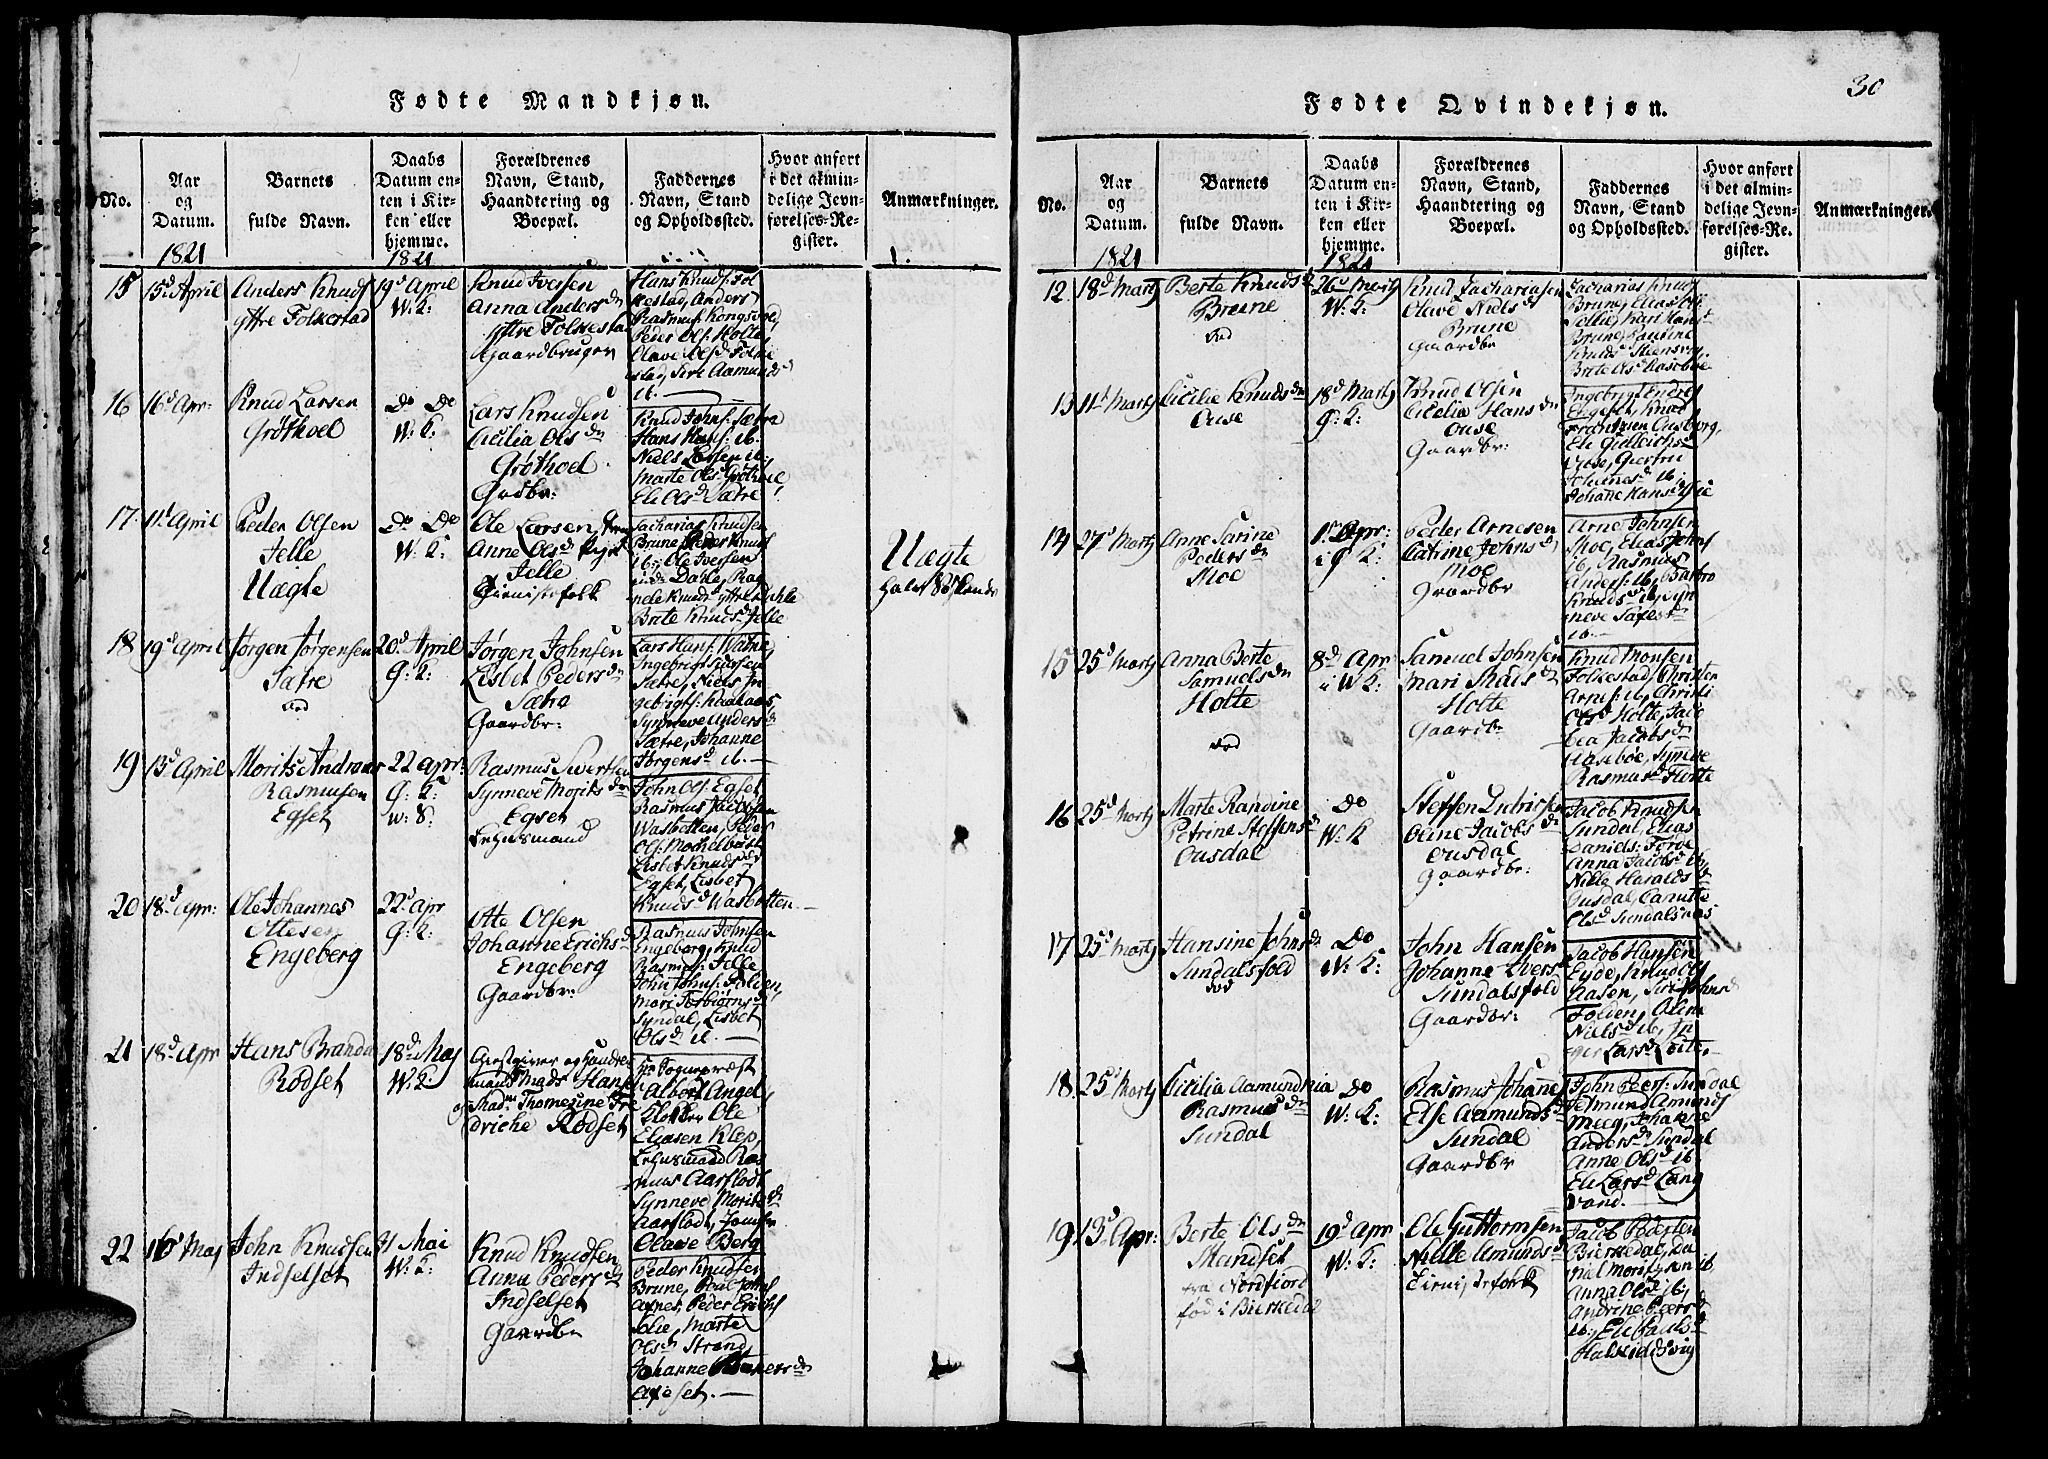 Fødte Mandkjøn.
No.
Aar
og
Datum.
1821
Barnets
fulde Navn.
Daabs
Datum en-
ten i Kir-
ken eller
hjemme.
1821
Forældrenes
Navn, Stand,
Haandtering og
Boepæl.
Faddernes
Navn, Stand
og Opholdssted.
Hvor anført
i det almin-
delige Jevn-
førelses-Re-
gister.
Anmærkninger.
15
15d April
Anders Knuds
yttre Folkestad
19d April
W: K:
Knud Iversen
Anna Andersdn
yttre Folkestad
Gaardbrugere
Hans Knuds: Fol
kestad, Anders
Rasmus: Kongsvoe,
Peder Ols: Holte
Olave Olsd Folke
stad, Siri Aamundsd
ib.
16
16d Apr:
Knud Larsen
Grøthoel
Do Do
W: K:
Lars Knudsen
Cicilia Olsdn
Grøthoel
Grdbr:
Knud Johns: Sætre
Hans Hans: ib.
Niels Larsen ib.
Marte Ols: Grøthoel,
Eli Olsd Sætre
17.
11d April
Peder Olsen
Jelle
Uægte
Do Do
W: K:
Ole Larsen
Anne Olsd
Jelle
Tienistefolk
Zacharias Knudsen
Brune, Peder Knuds
ib, Ole Iversen
Dahle,
Brite Knudsd Jelle
Uægte
halvt Søskende
18
19d April
Jørgen Jørgensen
Sætre
20d April
G: K:
Jørgen Johnsen
Lisbet Pedersdn
Sætre
Gaardbr:
Lars Hans: Watne,
Ingebrigt Siursen
Sætre, Niels In
gebrigts: Raaknæs,
Synneve Andersd
Sætre, Johanne
Jørgensd ib.
19
13d April
Morits Andreas
Rasmusen
Egset
22 apr:
G: K:
W: S:
Rasmus Sivertsen
Synneve Moritsdn
Egset
Lehnsmand
John Ols: Egset,
Rasmus Jacobsen
Wasbotten, Peder
Ols: Mochelbust
Lisbet Knudsd
Egset, Lisbet
Knudsd Wasbotten
20
18d Apr:
Ole Johannes
Ottesen
Engeberg
22d apr
G: K:
Otte Olsen
Johanne Erichsd
Engeberg
Gaardbr:
Rasmus Johnsen
Engeberg, Knud
Rasmus: Jelle
John Johns: Folden,
Mari Torbiørnsd
Syndal, Lisbet
Olsd ib.
21
18d Apr
Hans Brandal
Rødset
18d Maj
W: K:
Giestgiver og Handels
mand Mads Hans
og Madm Thomesine Fre
driche Rødset
Hr: Sognepræst
Albert Angel
Ole
Eliasen Klep,
Lehnsmand Ras
mus Aarflodt
Synneve Moritsd
Aarflodt, Jomfr
Olave Berg
22
16d Maj
John Knudsen
Indselset
Mai
W: K:
Knud Knudsen
Anna Pedersdn
Indselset
Gaardbr
Peder Knudsen
Brune, Poul Johns
Peder Erichs
Folie, Marte
Olsd Strand,
Johanne
Fødte Qvindekjøn.
30
No.
Aar
og
Datum.
1821
Barnets
fulde Navn.
Daabs
Datum en-
ten i Kir-
ken eller
hjemme.
1821
Forældrenes
Navn, Stand,
Haandtering og
Boepæl.
Faddernes
Navn, Stand
og Opholdssted.
Hvor anført
i det almin-
delige Jevn-
førelses-Re-
gister.
Anmærkninger.
12.
18d Martj
Berte Knudsd
Brune
26d Martj
W: K:
Knud Zachariasen
Olave Nielsd
Brune
Gaardbr
Zacharias Knuds
Brune, Elias Ols
Jelle, Kari Hansd
Brune, Pauline
Knudsd
Brite Olsd Haseboe
13
11d Martj
Cicilie Knudsdn
Ouse
18d Martj
G: K:
Knud Olsen
Cicilia Hansdn
Ouse
Gaardbr:
Ingebrigt Endres
Engeset, Knud
Frantzen Aasborg,
Eli
Ouse, Giertrud
ib,
Johane Hansd
14
27d Martj
Anne Sarine
Pedersdn
Moe
1d Apr:
i G: K:
Peder Arnesen
Catrine Johnsd
Moe
Graardbr
Arne Johnsen
Moe, Elias Johns
ib, Rasmus
Anders: ib, Barbro
Knudsd ib, Syn
neve
ib.
15
25d Martj
Anna Berte
Samuelsdn
Holte
8d Apr
i W: K:
Samuel Johnsen
Mari Madsd
Holte
Gaardbr
Knud Monsen
Folkestad, Christen
Arns: ib, Christi
Olsd Holte, Jaco
bea Jacobsd
Haseboe, Synneve
Rasmusd Holte
16
25d Martj
Marte Randine
Petrine Steffensd
Ousdal
Do
W: K
Steffen Endrisen
Oline Jacobsd
Ousdal
Gaardbr:
Jacob Knudsen
Sundal, Elias
Daniels: Førde
Anna Jacobsd ib,
Nille Haraldsd
Ousdal, Canutte
Olsd Sundalsnæs
17
25d Martj
Hansine Johnsdn
Sundalsfold
død
Do
W: K:
John Hansen
Johanne Iversd
Sundalsfold
Gaardbr:
Jacob Hansen
Eyde, Knud Ols
Aasen, Siri Johnsd
Folden, Oline
Nielsd ib, In
ger Larsd
18.
25d Martj
Cicilia Aamundnia
Rasmusdn
Sundal
Do
W: K:
Rasmus Johannes
Else Aamundsd
Sundal
Gaardbr
John Peers: Sundal
Aamund Amunds
Meeg, Johanne
Andersd Sundal
Anne Olsd ib
Eli Larsd Lang
vand.
19
13d Apr:
Berte Olsdn
Mandset
fra Nordfiord
fød i Bierkedal
19d apr
W: K:
Ole Guttormsen
Nille Amundsd
Tienistefolk
Jacob Peersen
Bierkedal, Da
niel Moritzsen ib
Anna Olsd ib,
Andrine Peersd
ib, Eli Paulsd
Halkildsvig